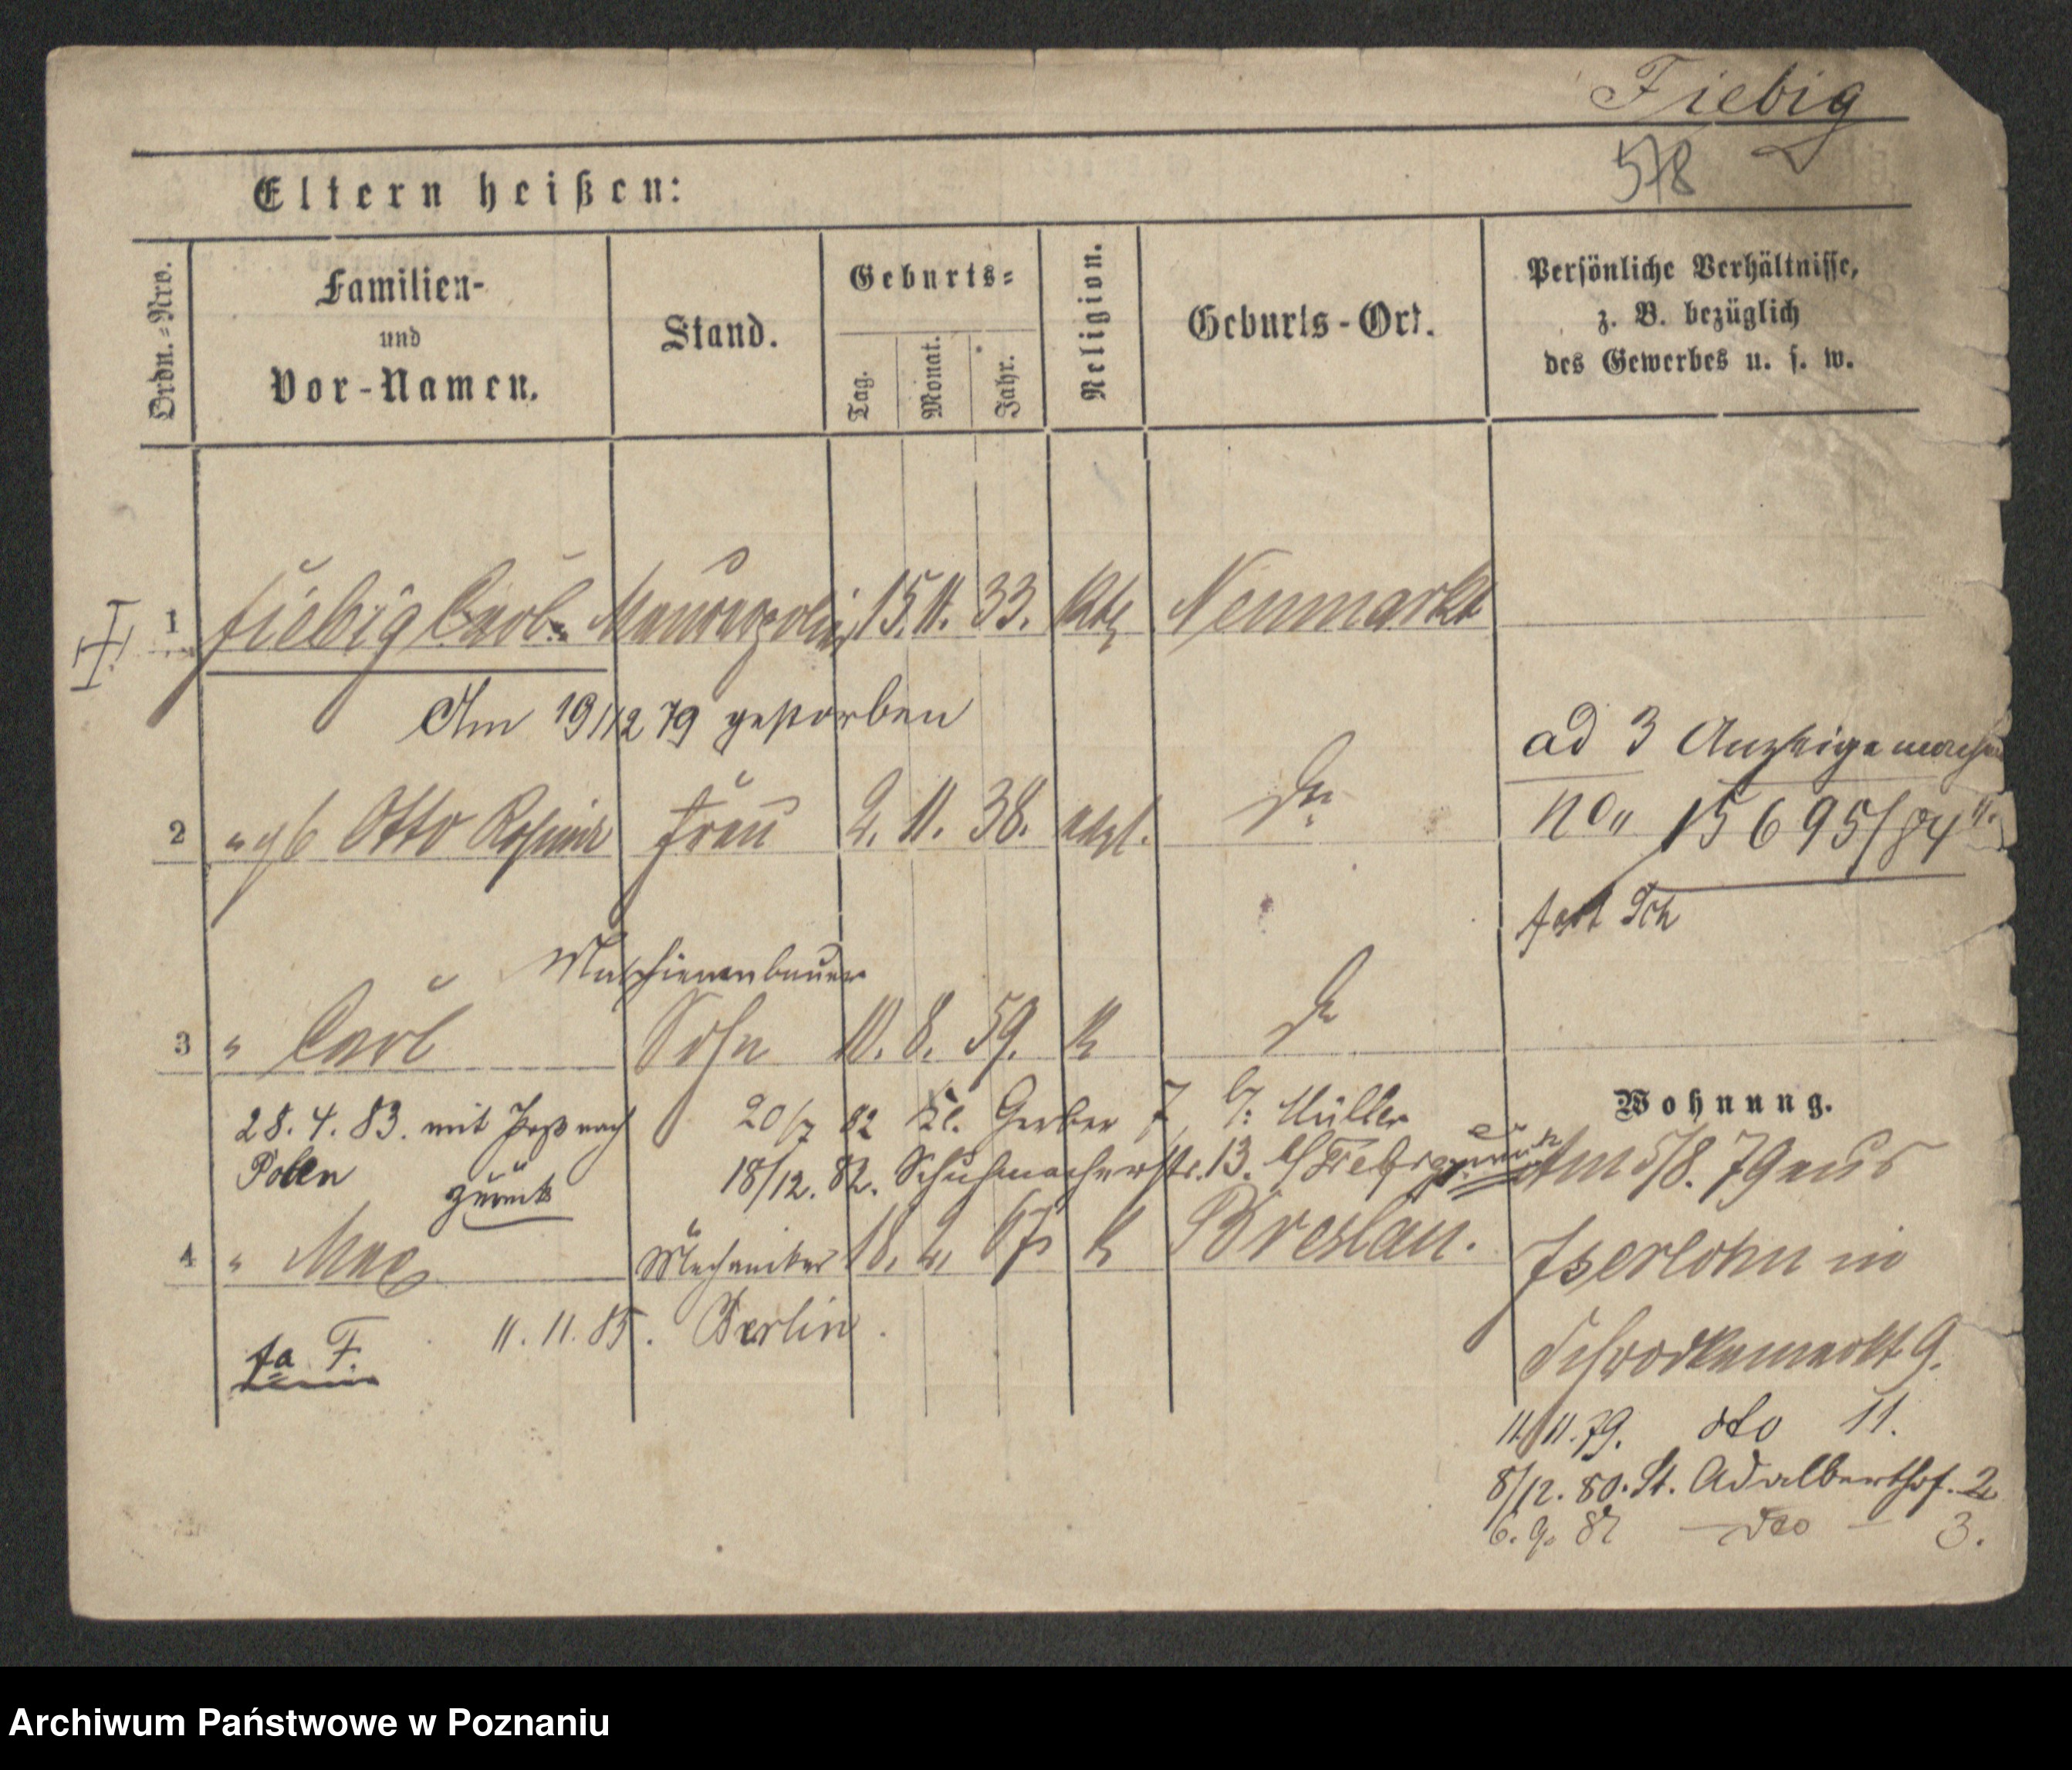 Fiebig
578
Eltern heißen:
Ordn.=Nro.
Familien-
und
Vor-Namen.
Stand.
Geburts=
Tag.
Monat.
Jahr.
Religion.
Geburts-Ort.
Persönliche Verhältnisse,
z. B. bezüglich
des Gewerbes u. s. w.
1 Fiebig Carl 15. 11. 33. kath Neumarkt
Am 19/12 79 gestorben
ad 3 Anzeige
2 " gb Otto Rosina Frau 2. 11. 38. evgl. do
No 15695/84
Maschienenbauer
3 " Carl Sohn 10. 8. 59. k do
28. 4. 83. mit Paß nach
Polen
zurück
20/7 82 Kl. Gerber 7, b/: Müller
18/12. 82. Schuhmacherstr. 13. b/
4 " Max Mechaniker 18. 2. 67. k Breslau.
fa F.
11. 11. 85. Berlin.
Wohnung.
Am 5/8. 79 aus
Iserlohn in
Schrodkamarkt 9.
11/11. 79. dto 11.
8/12. 80. St. Adalberthof. 2
6. 9. 82 — dto — 3.
Archiwum Państwowe w Poznaniu